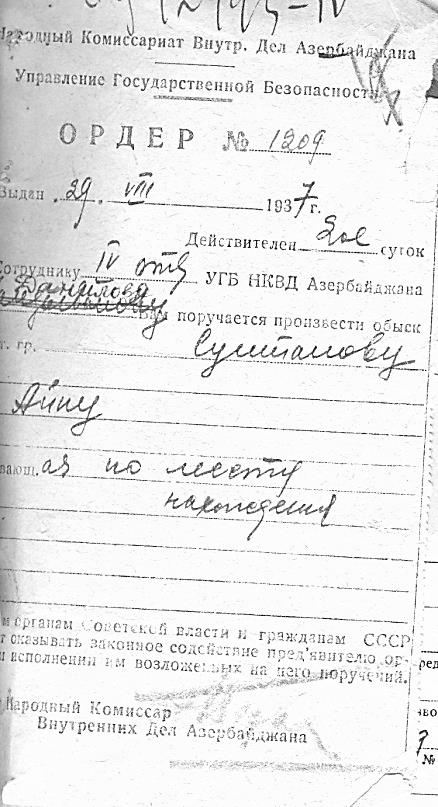 Народный Комиссариат Внутр. Дел Азербайджана
Управление Государственной Безопасности
ОРДЕР № 1209
Выдан 29. VIII 1937 г.
Действителен 2ое суток
Сотруднику IV отд УГБ НКВД Азербайджана
Данилова
Вам поручается произвести обыск
т. гр. Султанову
Айну
вающ.ая по месту
нахождения
м органам Советской власти и гражданам СССР
т оказывать законное содействие пред'явителю ор-
и исполнении им возложенных на него поручений.
Народный Комиссар
Внутренних Дел Азербайджана
ред
№